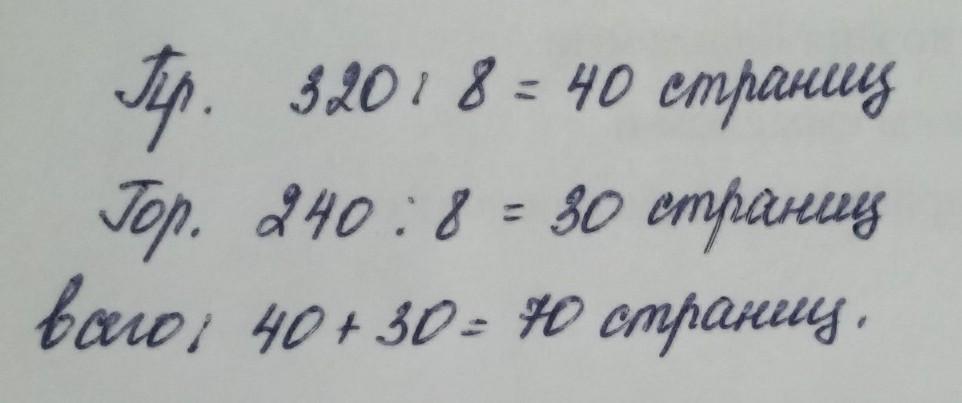 Пр. 320 : 8 = 40 страниц
Гор. 240 : 8 = 30 страниц
всего: 40 + 30 = 70 страниц.